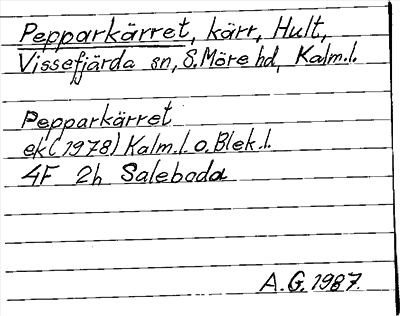 Pepparkärret, kärr, Hult,
Vissefjärda sn, S. Möre hd, Kalm.l.
Pepparkärret
ek (1978) Kalm.l. o. Blek.l.
4F 2h Saleboda
A.G. 1987.